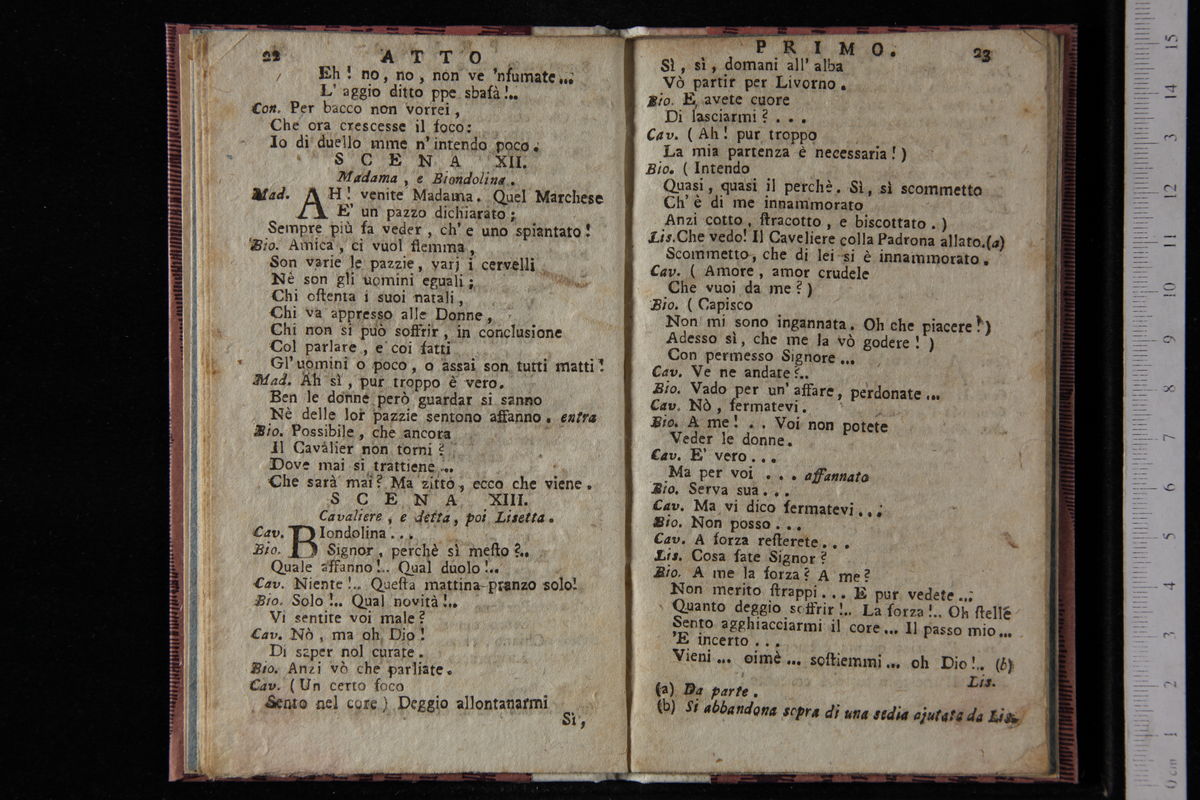 22 ATTO
Eh! no, no, non ve 'nfumate...
L' aggio ditto ppe sbafà!..
Con. Per bacco non vorrei,
Che ora crescesse il foco:
Io di duello mme n' intendo poco.
SCENA XII.
Madama, e Biondolina.
Mad. AH! venite Madama. Quel Marchese
E' un pazzo dichiarato;
Sempre più fa veder, ch' e uno spiantato!
Bio. Amica, ci vuol flemma,
Son varie le pazzie, varj i cervelli
Nè son gli uomini eguali;
Chi ostenta i suoi natali,
Chi va appresso alle Donne,
Chi non si può soffrir, in conclusione
Col parlare, e coi fatti
Gl' uomini o poco, o assai son tutti matti!
Mad. Ah sì, pur troppo è vero.
Ben le donne però guardar si sanno
Nè delle lor pazzie sentono affanno. entra
Bio. Possibile, che ancora
Il Cavalier non torni?
Dove mai si trattiene...
Che sarà mai? Ma zitto, ecco che viene.
SCENA XIII.
Cavaliere, e detta, poi Lisetta.
Cav. BIondolina...
Bio. Signor, perchè sì mesto?..
Quale affanno!.. Qual duolo!..
Cav. Niente!.. Questa mattina pranzo solo!
Bio. Solo!.. Qual novità!..
Vi sentite voi male?
Cav. Nò, ma oh Dio!
Di saper nol curate.
Bio. Anzi vò che parliate.
Cav. (Un certo foco
Sento nel core) Deggio allontanarmi
Sì,
PRIMO. 23
Sì, sì, domani all' alba
Vò partir per Livorno.
Bio. E avete cuore
Di lasciarmi?...
Cav. (Ah! pur troppo
La mia partenza è necessaria!)
Bio. (Intendo
Quasi, quasi il perchè. Sì, sì scommetto
Ch' è di me innammorato
Anzi cotto, stracotto, e biscottato.)
Lis. Che vedo! Il Caveliere colla Padrona allato.(a)
Scommetto, che di lei si è innammorato.
Cav. (Amore, amor crudele
Che vuoi da me?)
Bio. (Capisco
Non mi sono ingannata. Oh che piacere!)
Adesso sì, che me la vò godere!)
Con permesso Signore...
Cav. Ve ne andate?..
Bio. Vado per un' affare, perdonate...
Cav. Nò, fermatevi.
Bio. A me!.. Voi non potete
Veder le donne.
Cav. E' vero...
Ma per voi... affannato
Bio. Serva sua...
Cav. Ma vi dico fermatevi...
Bio. Non posso...
Cav. A forza resterete...
Lis. Cosa fate Signor?
Bio. A me la forza? A me?
Non merito strappi... E pur vedete...
Quanto deggio soffrir!.. La forza!.. Oh stelle
Sento agghiacciarmi il core... Il passo mio...
'E incerto...
Vieni... oimè... sostiemmi... oh Dio!.. (b)
Lis.
(a) Da parte.
(b) Si abbandona sopra di una sedia ajutata da Lis.
15
14
13
12
11
10
9
8
7
6
5
4
3
2
1
0 cm